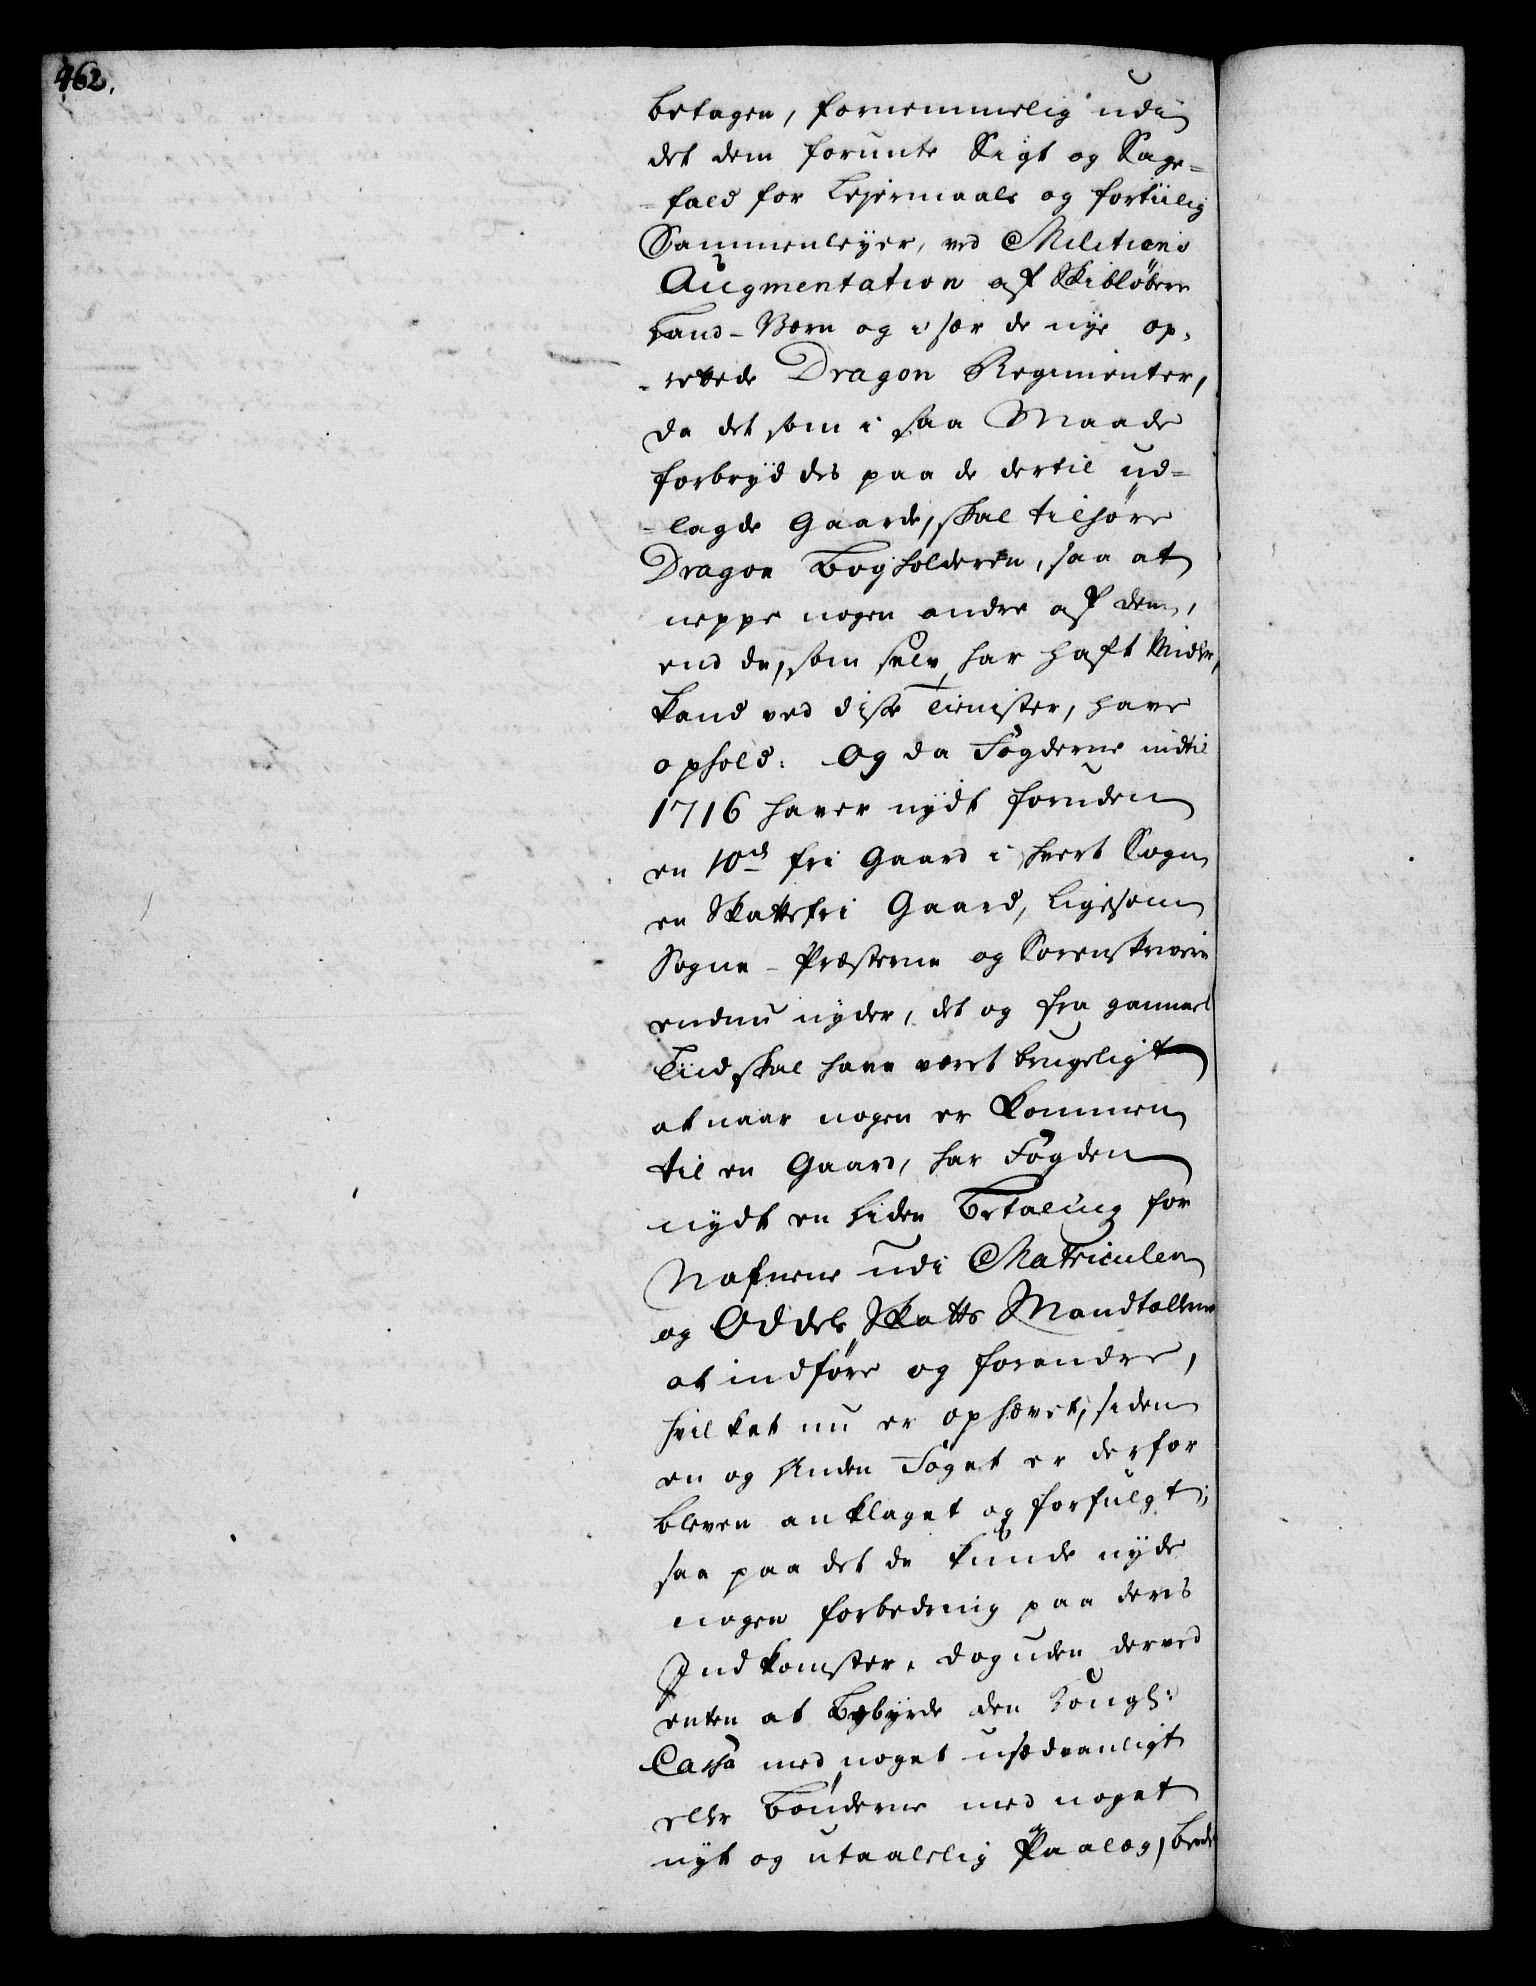 462.
betagen, fornemmelig udi
det dem forunte Sigt og Sage-
-fald for Lejermaals og fortiilig
Sammenleyer, ved Militiens
Augmentation af Skibløbere
Land-Værn og i sær de nye op-
-rettede Dragon Regimenter,
da det som i saa Maade
forbrydes paa de dertil ud-
-lagde Gaarde, skal tilhøre
Dragon Bogholderen, saa at
neppe nogen andre af dem,
end de, som selv har haft Midler,
kand ved disse Tienister, have
ophold: Og da Fogderne indtil
1716 haver nydt foruden
en 10de fri Gaard i hvert Sogn
en Skattefri Gaard, ligesom
Sogne-Præsterne og Sorenskriver
endnu nyder, det og fra gammel
Tiid skal have været brugeligt
at naar nogen er kommen
til en Gaard, har Fogden
nydt en liden Betaling for
Nafnene udi Matriculen
og Oddels Skatts Mandtallerne
at indføre og forandre,
hvilket nu er ophævet, siden
en og Anden Foget er derfor
bleven anklaget og forfulgt;
saa paa det de kunde nyde
nogen forbedring paa deres
Indkomster, dog uden derved
enten at Bebyrde den Kongl:
Cassa med noget usædvanligt
eller Bønderne med noget
nyt og utaalelig Paalæg,